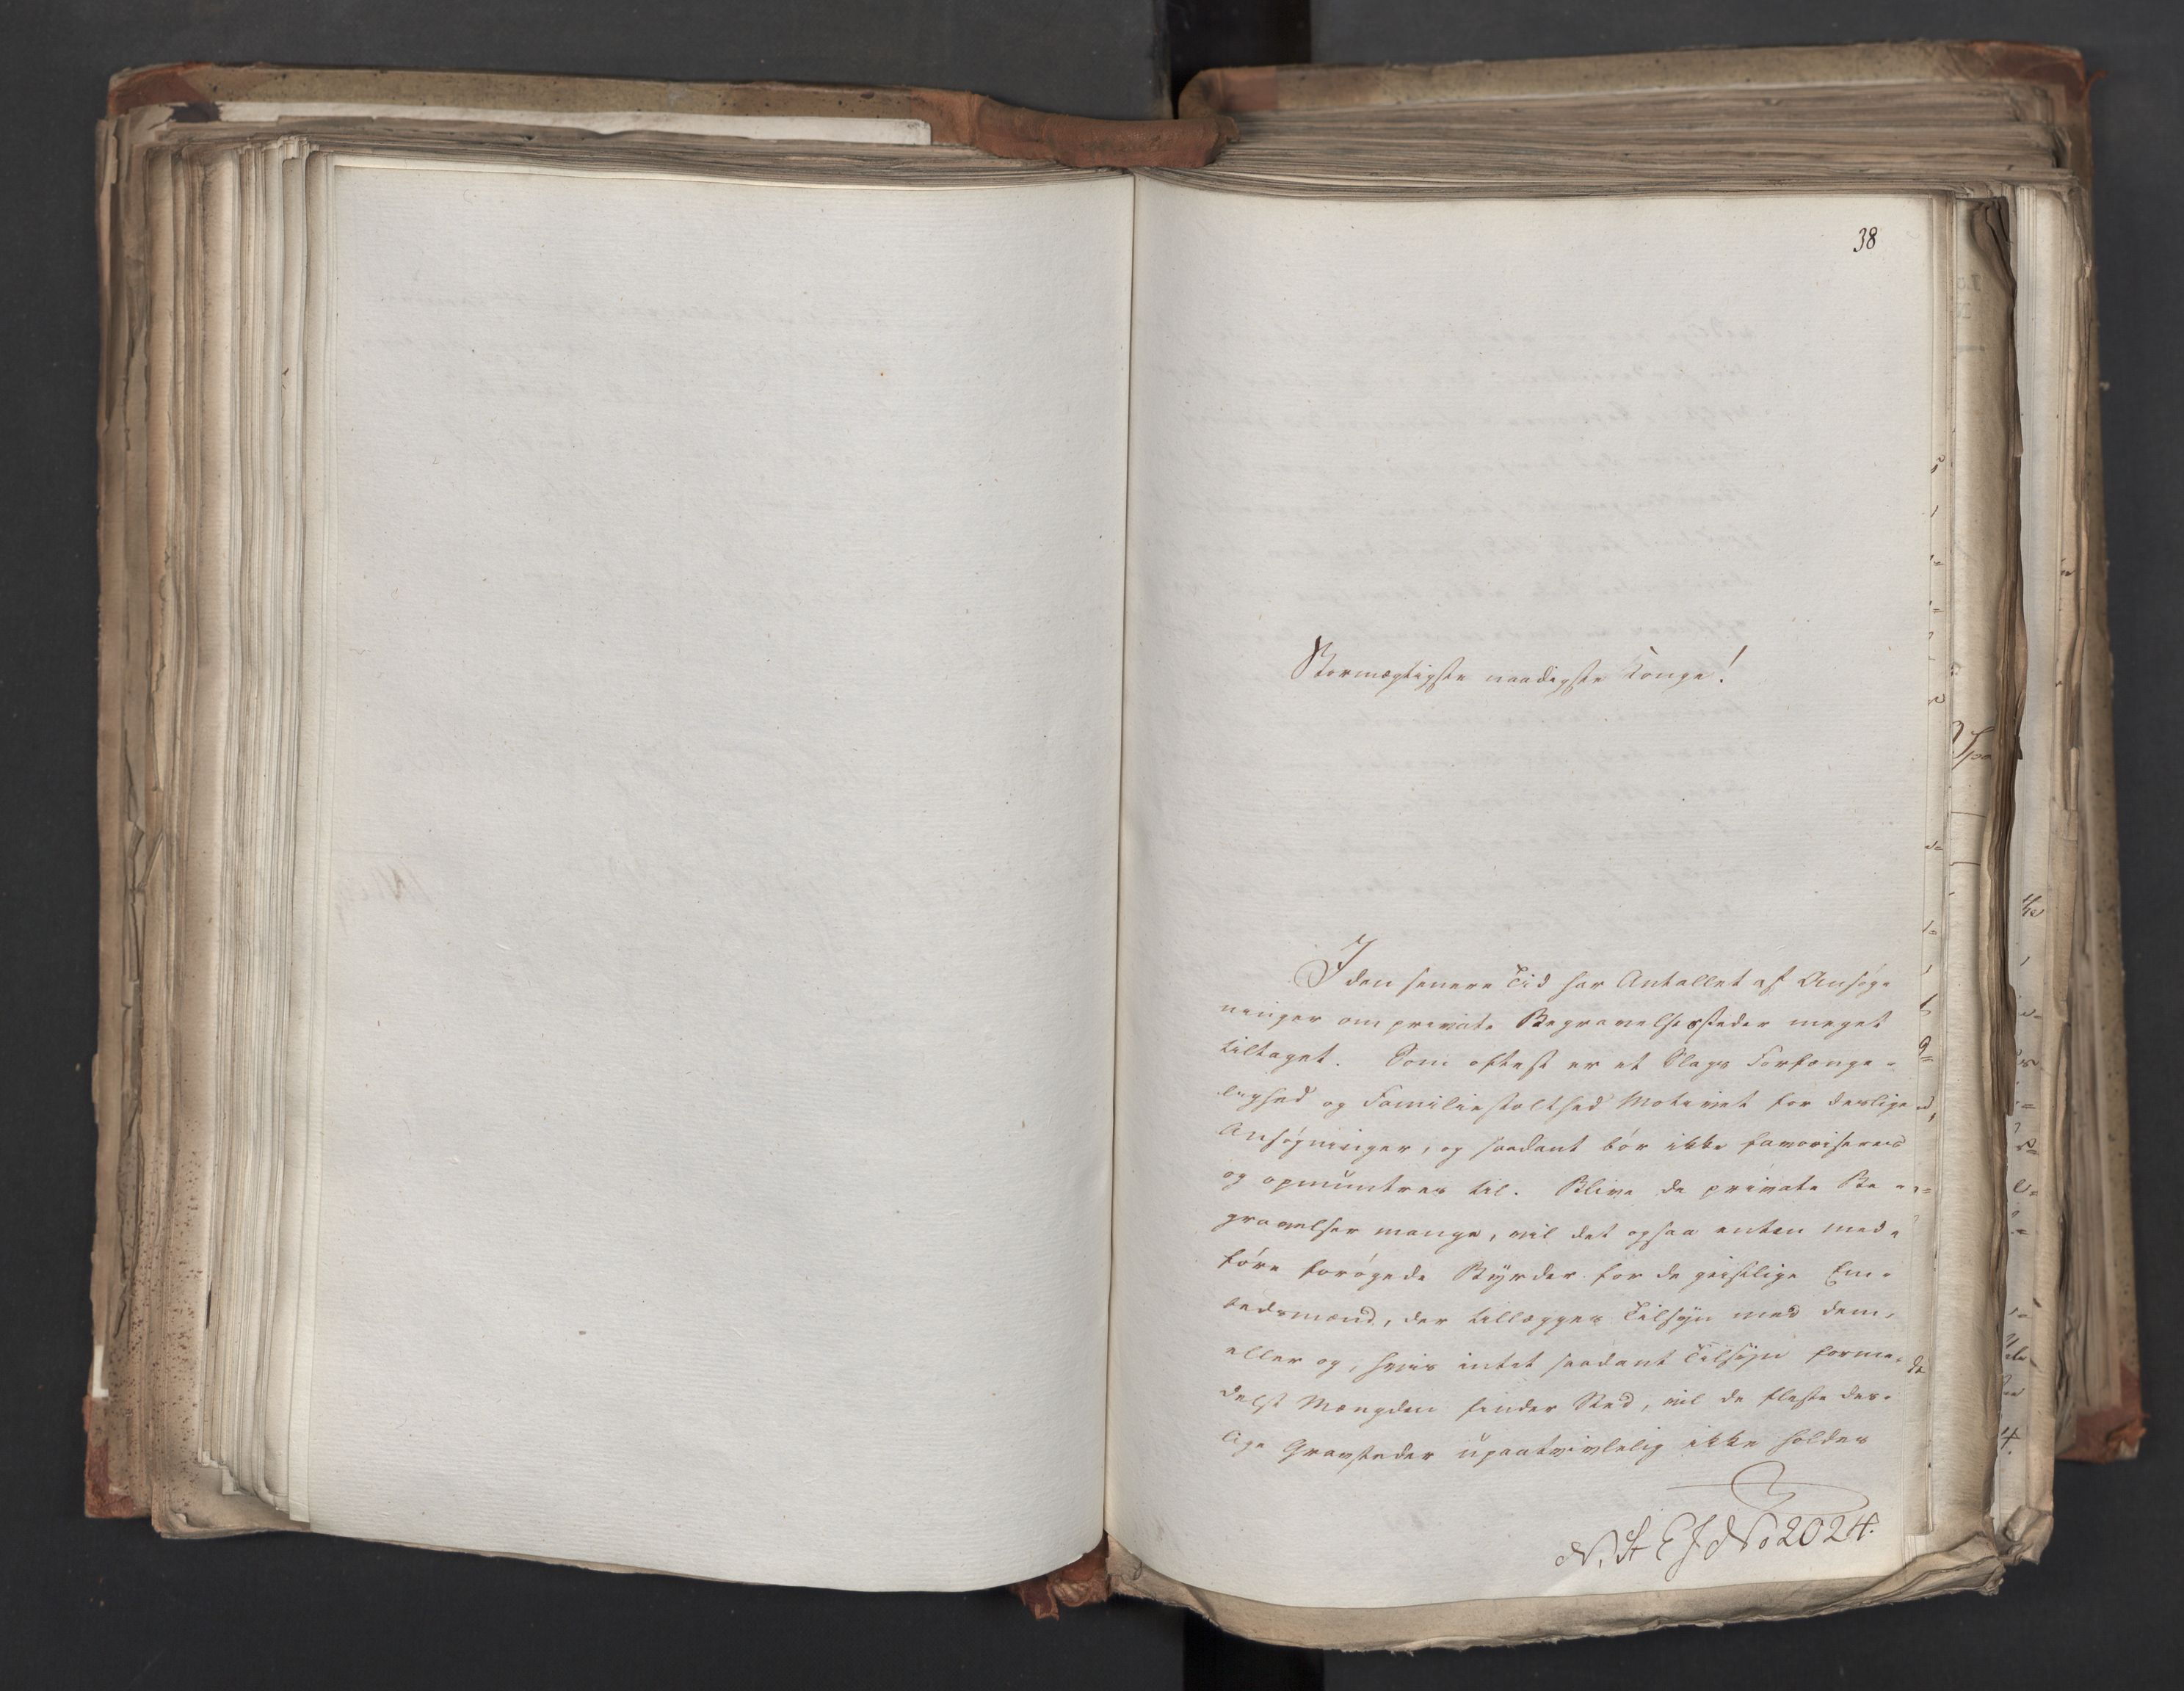 38
Stormægtigste naadigste Konge!
I den senere Tid har Antallet af Ansøg-
ninger om private Begravelsessteder meget
tiltaget. Som oftest er et Slags Forfænge-
lighed og Familiestolthed Motivet for deslige
Ansøgninger, og saadant bør ikke favoriseres
og opmuntres til. Blive de private Be-
gravelser mange, vil det ogsaa enten med-
føre forøgede Byrder for de geistlige Em-
bedsmænd, der tillægges Tilsyn med dem,
eller og, hvis intet saadant Tilsyn forme-
delst Mængden finder Sted, vil de fleste des-
lige Gravsteder upaatvivlelig ikke holdes
N. St E J No 2024.